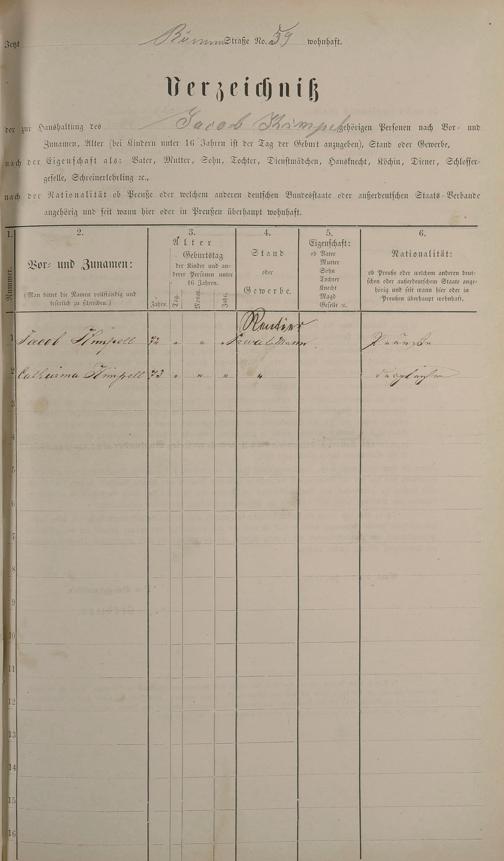 Jetzt Straße No. 59 wohnhaft.
Verzeichniß
der zur Haushaltung des Jacob gehörigen Personen nach Vor- und
Zunamen, Alter (bei Kindern unter 16 Jahren ist der Tag der Geburt anzugeben), Stand oder Gewerbe,
nach der Eigenschaft als: Vater, Mutter, Sohn, Tochter, Dienstmädchen, Hausknecht, Köchin, Diener, Schlosser-
geselle, Schreinerlehrling ꝛc.,
nach der Nationalität ob Preuße oder welchem anderen deutschen Bundesstaate oder außerdeutschen Staats-Verbande
angehörig und seit wann hier oder in Preußen überhaupt wohnhaft.
1.
Nummer.
2.
Vor- und Zunamen:
(Man bittet die Namen vollständig und
leserlich zu schreiben.)
3.
Alter
Geburtstag
der Kinder und an-
derer Personen unter
16 Jahren.
Jahre.
Tag.
Monat.
Jahr.
4.
Stand
oder
Gewerbe.
5.
Eigenschaft:
ob Vater
Mutter
Sohn
Tochter
Knecht
Magd
Geselle ꝛc.
6.
Nationalität:
ob Preuße oder welchem anderen deut-
schen oder außerdeutschen Staate ange-
hörig und seit wann hier oder in
Preußen überhaupt wohnhaft.
Rentner
1 Jacob 72 " " "
2 Catharina 73 " " " "
3
4
5
6
7
8
9
10
11
12
13
14
15
16